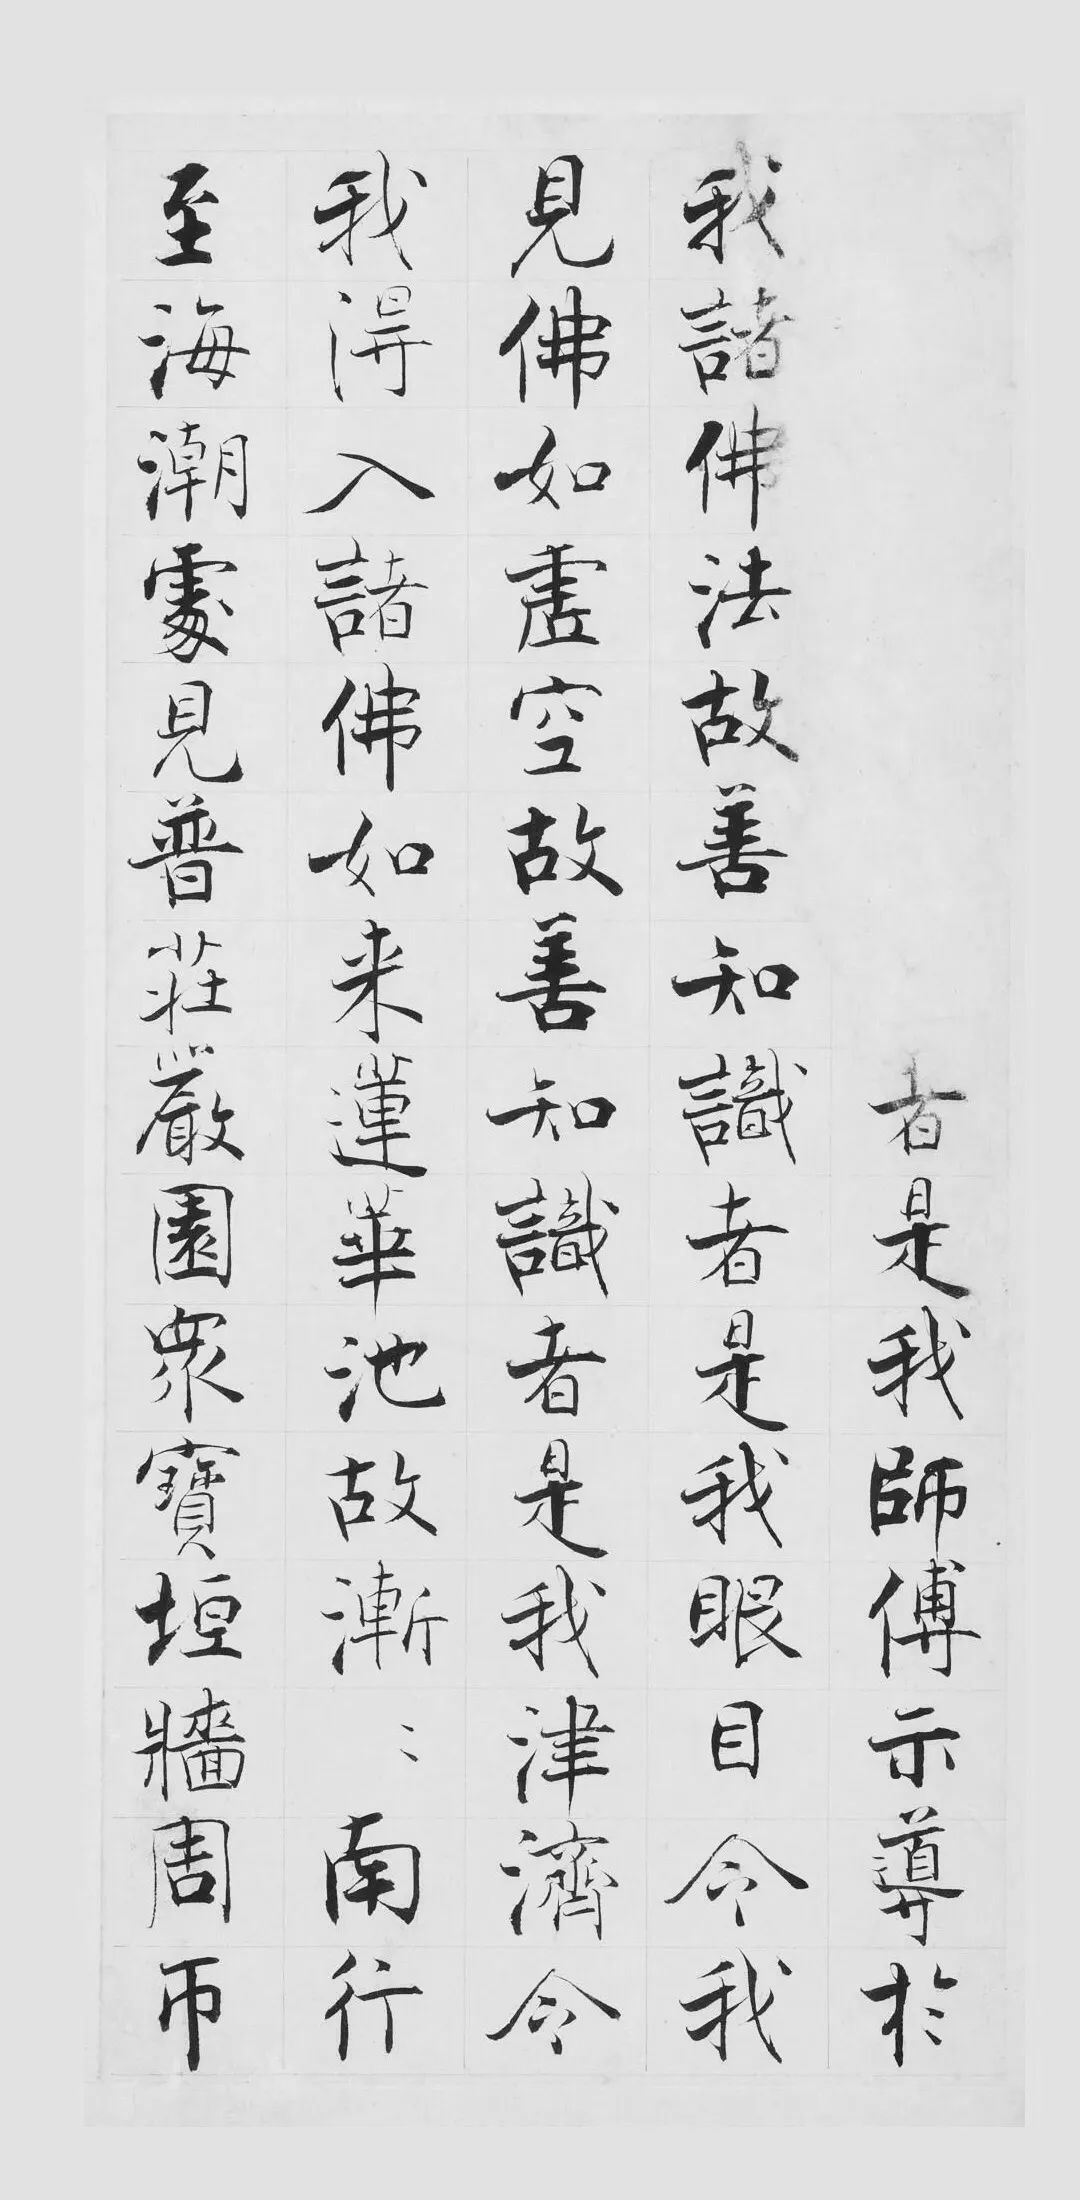 者是我師傅示導於
我諸佛法故善知識者是我眼目令我
見佛如虛空故善知識者是我津濟令
我得入諸佛如来蓮華池故漸〻南行
至海潮處見普莊嚴園衆寶垣牆周帀